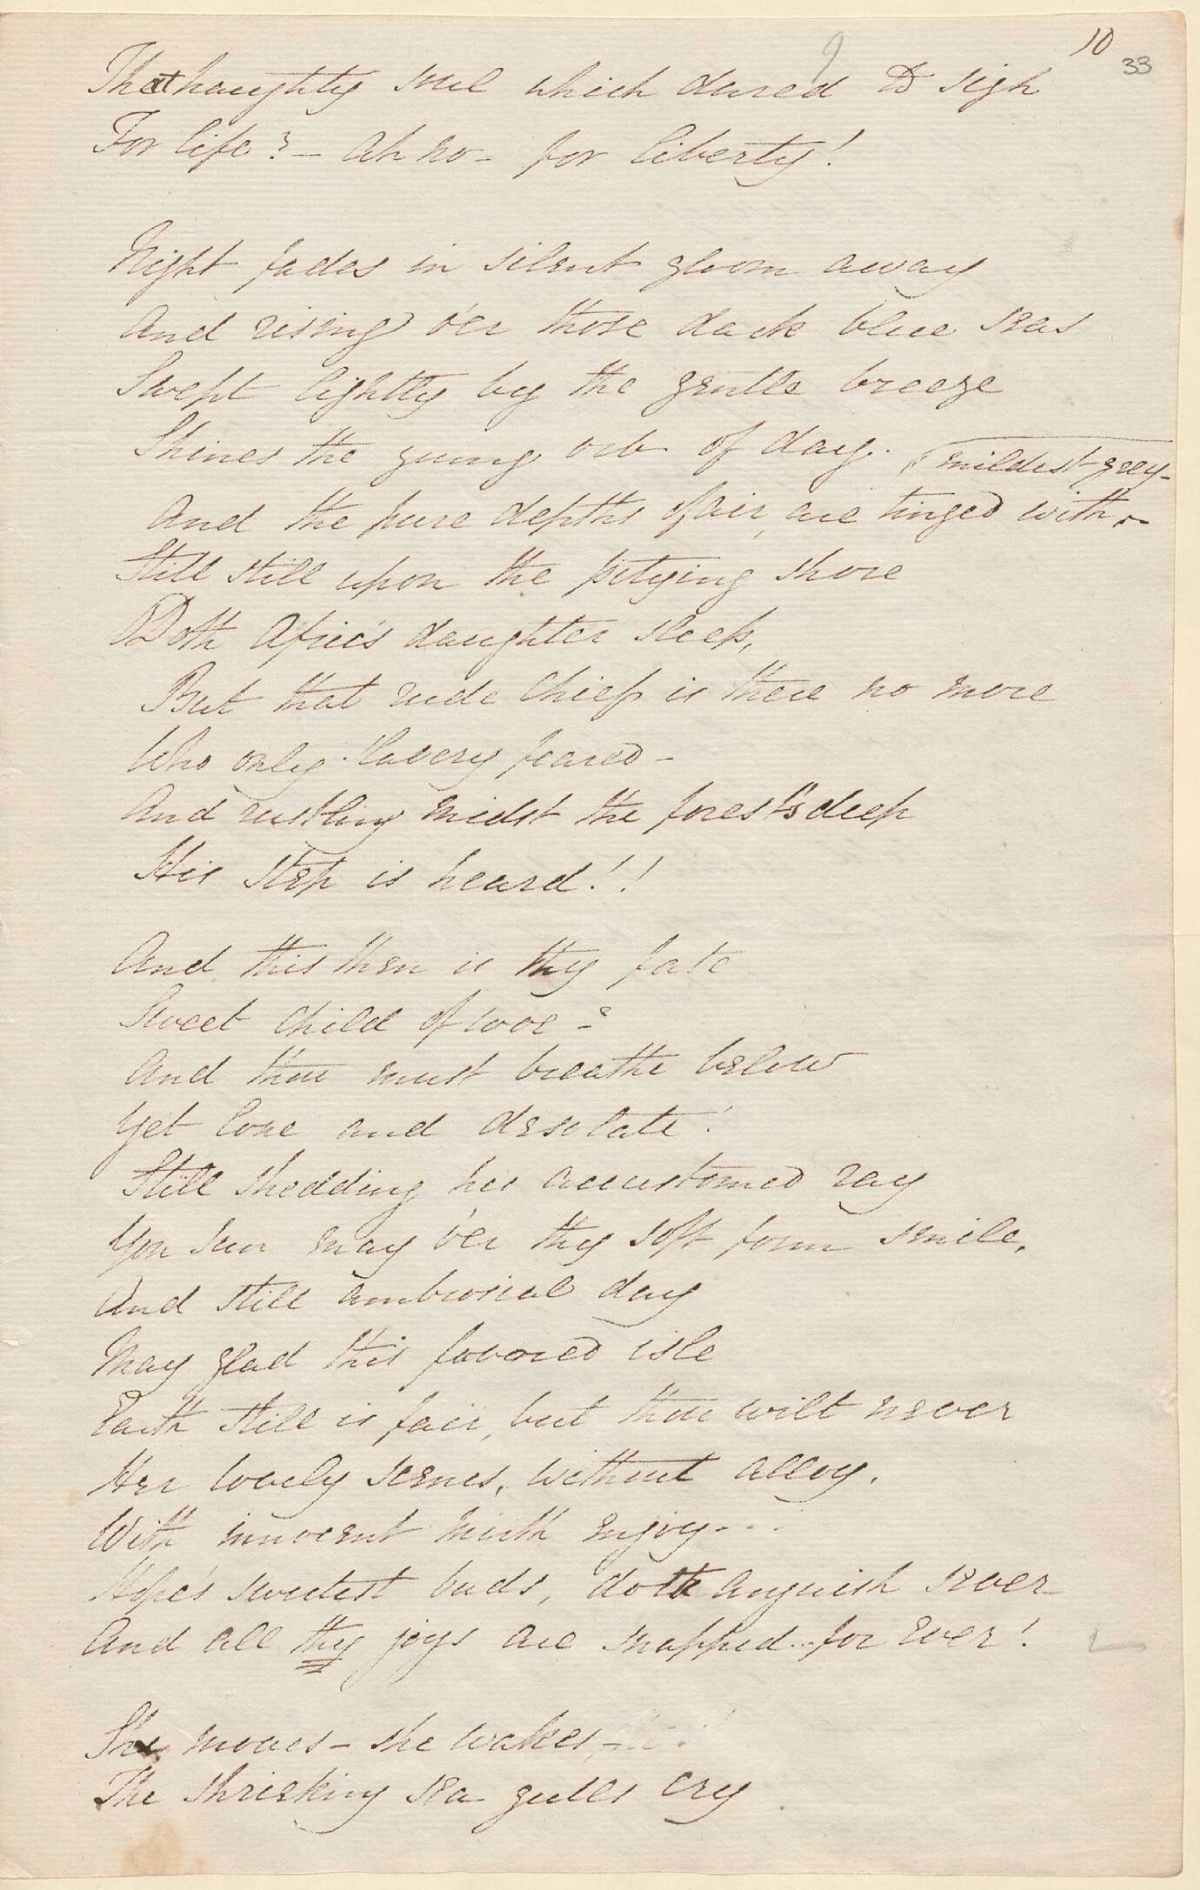 10
33
9
That haughty soul which dared to sigh
For life? - Ah no - for liberty!
Night fades in silent gloom away
And rising o'er those dark blue seas
Swept lightly by the gentle breeze
Shines the young orb of day.
mildest grey -
And the pure depths of air, are tinged with
Still still upon the pitying shore
Doth Afric's daughter sleep,
But that rude Chief is there no more
Who only slavery feared -
And rustling midst the forest's deep
His step is heard!!
And this then is thy fate
Sweet child of woe -?
And thou must breathe below
Yet lone and desolate!
Still shedding his accustomed ray
Yon sun may o'er thy soft form smile,
And still ambrosial day
May glad this favored isle
Earth still is fair, but thou wilt never
Her lovely scenes, without alloy,
With innocent mirth enjoy - . .
Hope's sweetest buds, doth anguish sever
And all thy joys are snapped .. for ever!
She moves - she wakes -
The shrieking sea gulls cry